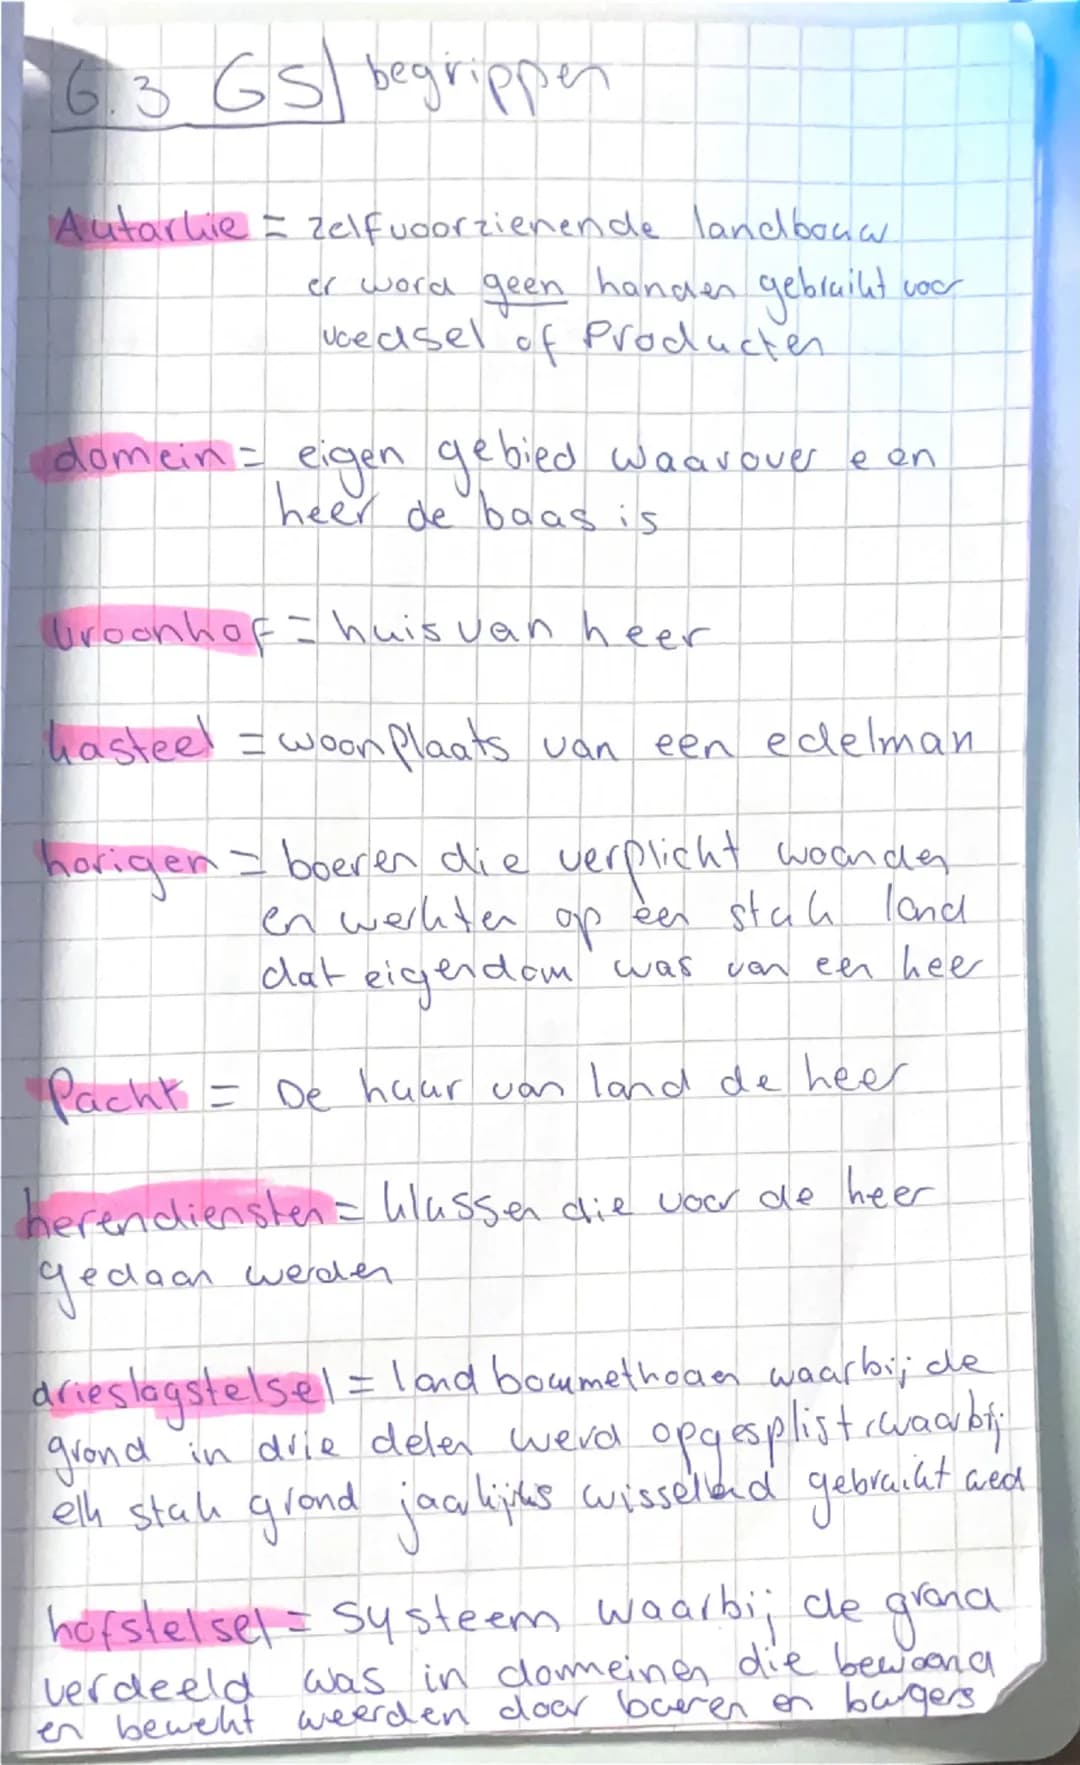 6.3 GS begrippen
Autarkie = zelfvoorzienende landbouw
er word geen handen gebruikt voor
voedsel of Producten
domein = eigen gebied waarover een
heer de baas is
vroonhof = huis van heer
kasteel = woonplaats van een edelman
horigen = boeren die verplicht woonden
en werkten op een stuk land
dat eigendom was van een heer
Pacht = De huur van land de heer
herendiensten = klussen die voor de heer
gedaan werden
drieslagstelsel = landbouwmethoden waarbij de
grond in drie delen werd opgesplist waarbij
elk stuk grond jaarlijks wisselend gebruikt werd
hofstelsel = Systeem waarbij de grond
verdeeld was in domeinen die bewoond
en bewekt weerden door boeren en burgers